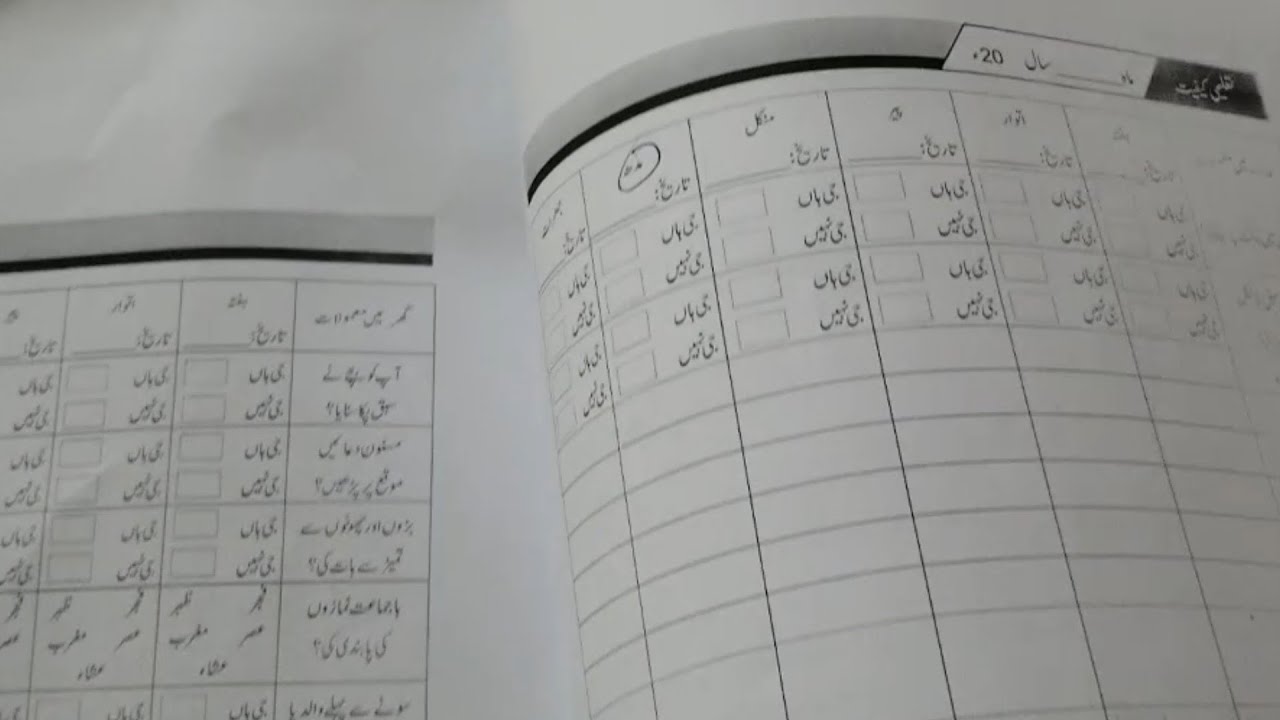 تعلیمی کیفیت
ماہ ______ سال 20ء
ہفتہ اتوار پیر منگل بدھ جمعرات
تاریخ: تاریخ: تاریخ: تاریخ: تاریخ: تاریخ:
جی ہاں جی ہاں جی ہاں جی ہاں جی ہاں جی ہاں
جی نہیں جی نہیں جی نہیں جی نہیں جی نہیں جی نہیں
جی ہاں جی ہاں جی ہاں جی ہاں جی ہاں جی ہاں
جی نہیں جی نہیں جی نہیں جی نہیں جی نہیں جی نہیں
گھر میں معمولات ہفتہ اتوار پیر
تاریخ: تاریخ: تاریخ:
آپ کو بچے نے جی ہاں جی ہاں جی ہاں
سبق پکا سنایا؟ جی نہیں جی نہیں جی نہیں
مسنون دعائیں جی ہاں جی ہاں جی ہاں
موقع پر پڑھیں؟ جی نہیں جی نہیں جی نہیں
بڑوں اور چھوٹوں سے جی ہاں جی ہاں جی ہاں
تمیز سے بات کی؟ جی نہیں جی نہیں جی نہیں
باجماعت نمازوں فجر ظہر فجر ظہر فجر
کی پابندی کی؟ عصر مغرب عصر مغرب عصر
عشاء عشاء
سونے سے پہلے والد یا جی ہاں جی ہاں جی ہاں